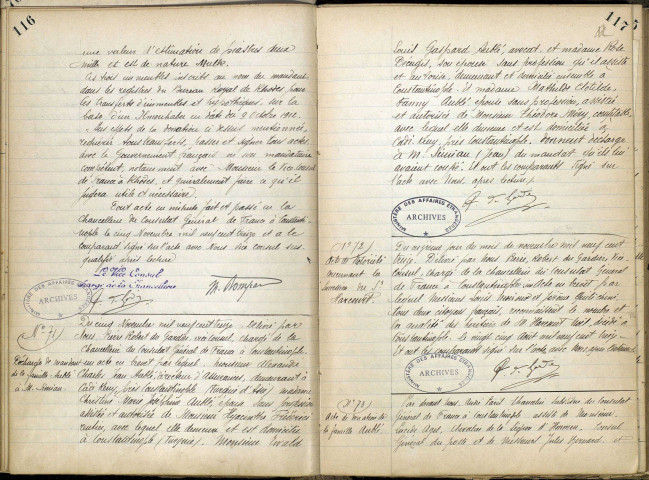 116
une valeur d'estimation de piastres deux
mille et est de nature Mulk.
Les trois immeubles inscrits au nom du mandant
dans les registres du Bureau Royal de Rhodes pour
les transferts d'immeubles et hypothèques sur la
base d'un Ilmouhaber en date du 9 Octobre 1912.
Aux effets de la donation ci dessus mentionnée,
requérir tous transferts, passer et signer tous actes
avec le Gouvernement français ou son mandataire
compétent, notamment avec Monsieur le Vice consul
de France à Rhodes, et généralement faire ce qu'il
jugera utile et nécessaire.
Dont acte en minute fait et passé en la
Chancellerie du Consulat Général de France à Constanti-
nople le cinq Novembre mil neuf cent treize et a le
comparant signé sur l'acte avec Nous vice consul sus
qualifié après lecture
Le Vice Consul
chargé de la Chancellerie
MINISTÈRE DES AFFAIRES ÉTRANGÈRES
ARCHIVES
N° 71
Décharge de mandat
de la famille Aublé
à M. Simian
Du cinq Novembre mil neuf cent treize. Délivré par
Nous Pierre Robert du Gardier, vice consul, chargé de la
Chancellerie du Consulat Général de France à Constantinople
un acte en brevet par lequel: monsieur Alexandre
Charles Jean Aublé, directeur d'Assurances, demeurant à
Cadi Keuy, près Constantinople (Turquie d'Asie) madame
Christine Marie Joséphine Aublé, épouse sans profession
assistée et autorisée de Monsieur Hyacinthe Frédérici
rentier, avec lequel elle demeure et est domiciliée
à Constantinople (Turquie). Monsieur Ewald
117
Louis Gaspard Aublé, avocat, et madame
son épouse sans profession qu'il assiste
et autorise, demeurant et domiciliés ensemble à
Constantinople et madame Mathilde Clotilde
Fanny Aublé épouse sans profession, assistée
et autorisée de Monsieur Théodore
avec lequel elle demeure et est domiciliée à
Cadi Keuy, près Constantinople. Donnent décharge
à M. Simian (Jean) du mandat
avaient confié. Et ont les comparants signé sur
l'acte avec Nous, après lecture,
MINISTÈRE DES AFFAIRES ÉTRANGÈRES
ARCHIVES
N° 72
Acte de Notoriété
concernant la
succession du Sr
Harcourt
jour du mois de novembre mil neuf cent
treize. Délivré par nous Pierre Robert du Gardier Vice
Consul, chargé de la chancellerie du Consulat Général
de France à Constantinople un acte en brevet par
lequel Messieurs Louis
tous deux citoyens français, reconnaissent le nombre et
la qualité des héritiers de M. Harcourt décédé à
Constantinople le vingt cinq Août mil neuf cent treize.
Et ont les comparants signé sur l'acte avec Nous après lecture
MINISTÈRE DES AFFAIRES ÉTRANGÈRES
ARCHIVES
N° 73
Acte de donation de
la famille Aublé
Par devant Nous
Général de France à Constantinople assisté de Monsieur
chevalier de la Légion d'Honneur, Consul
Général du poste et de Messieurs Jules Bernard et